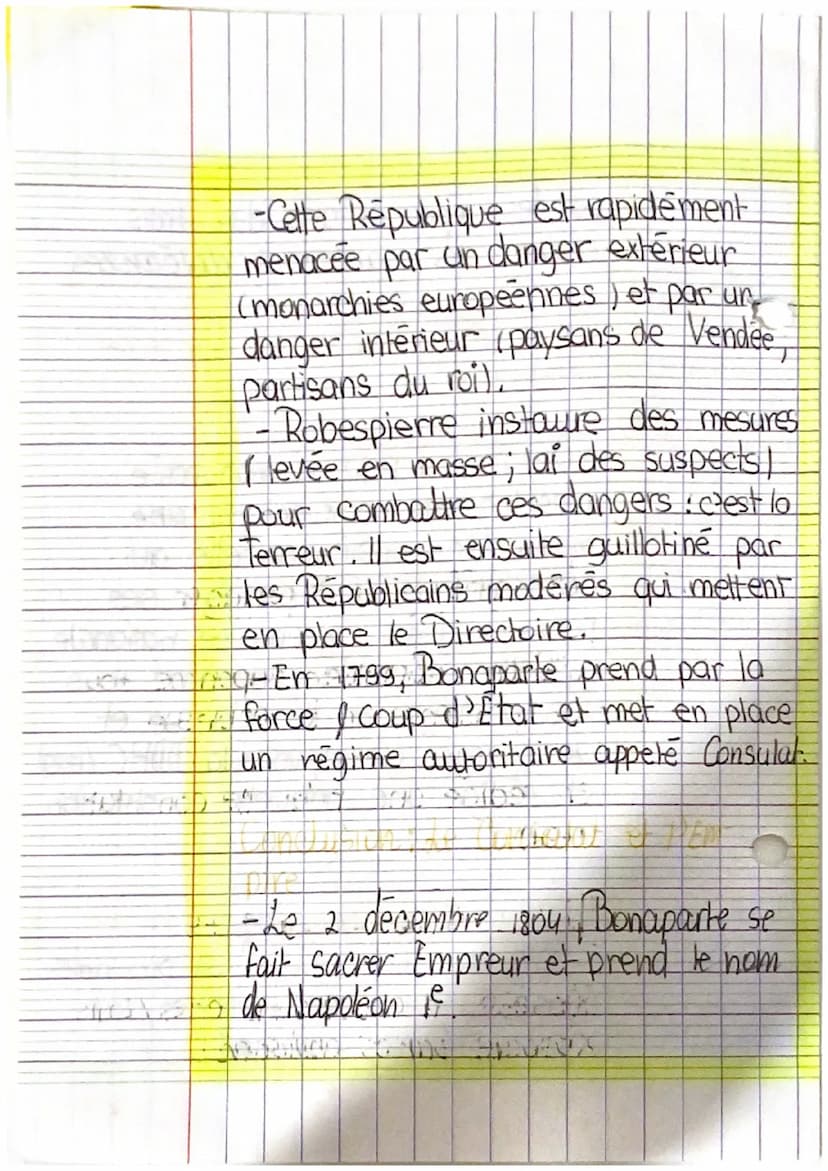 -Cette République est rapidement
menacée par un danger extérieur
(monarchies européennes) et par un
danger intérieur (paysans de Vendée,
partisans du roi).
- Robespierre instaure des mesures
(levée en masse ; lai des suspects)
pour combattre ces dangers : c'est la
Terreur. Il est ensuite guillotiné par
les Républicains modérés qui mettent
en place le Directoire.
- En 1799, Bonaparte prend par la
force / coup d'État et met en place
un régime autoritaire appelé Consulat.
Conclusion : Le Consulat et l'Em
pire
- Le 2 décembre 1804, Bonaparte se
fait sacrer Empreur et prend le nom
de Napoléon 1e.